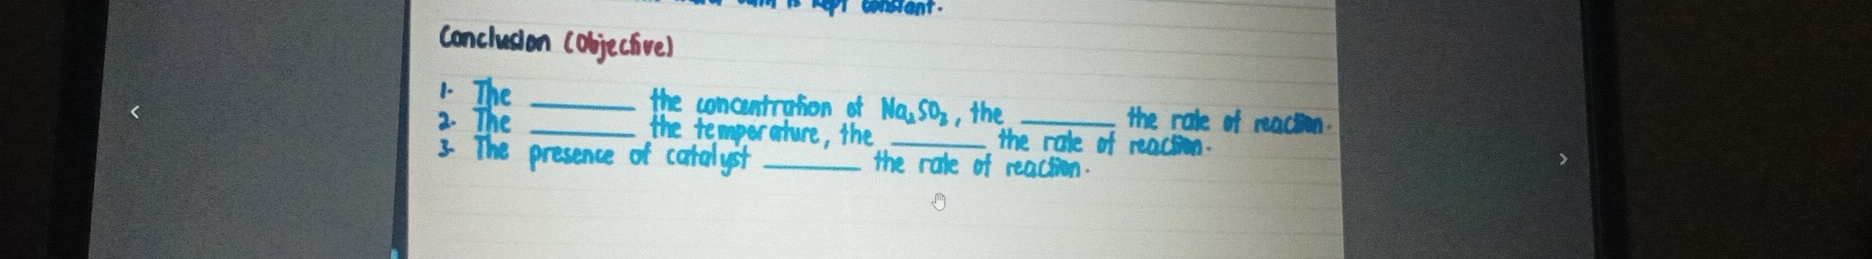 is kept constant.
Conclusion (Objective)
1. The ________ the concentration of Na₂SO₃, the ________ the rate of reaction.
2. The ________ the temperature, the ________ the rate of reaction.
3. The presence of catalyst ________ the rate of reaction.